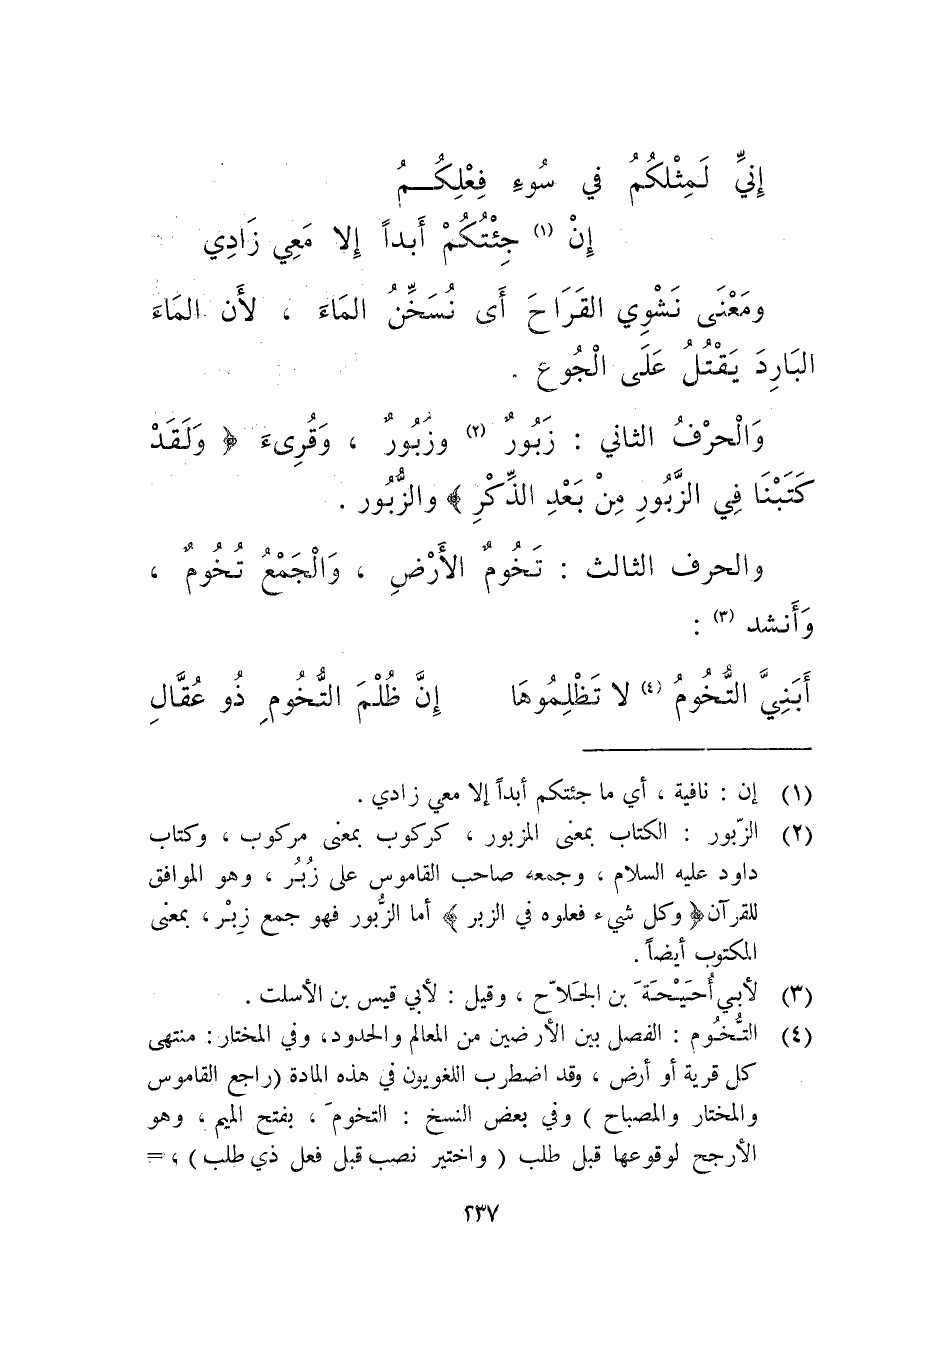 إِنِّي لَمِثْلُكُمُ في سُوءِ فِعْلِكُمُ
إِنْ (١) جِئْتُكُمْ أَبداً إِلا مَعِي زَادِي
ومَعْنَى نَشْوِي القَرَاحَ أَى نُسَخِّنُ المَاءَ ، لأَن المَاءَ
البَارِدَ يَقْتُلُ عَلَى الْجُوعِ .
وَالْحرْفُ الثاني : زَبُورٌ (٢) وزُبُورٌ ، وَقُرِىءَ ﴿ وَلَقَدْ
كَتَبْنَا فِي الزَّبُورِ مِنْ بَعْدِ الذِّكْرِ ﴾ والزُّبُور .
والحرف الثالث : تَخُومٌ الأَرْضِ ، وَالْجَمْعُ تُخُومٌ ،
وَأَنشد (٣) :
أَبَنِيَّ التُّخُومُ (٤) لا تَظْلِمُوهَا إِنَّ ظُلْمَ التُّخُومِ ذُو عُقَّالِ
(١) إن : نافية ، أي ما جئتكم أبداً إلا معي زادي .
(٢) الزّبور : الكتاب بمعنى المزبور ، كركوب بمعنى مركوب ، وكتاب
داود عليه السلام ، وجمعه صاحب القاموس على زُبُر ، وهو الموافق
للقرآن ﴿ وكل شيء فعلوه في الزبر ﴾ أما الزُّبور فهو جمع زِبْر ، بمعنى
المكتوب أيضاً .
(٣) لأبي أُحَيْحَةَ بن الجَلاّح ، وقيل : لأبي قيس بن الأسلت .
(٤) التُّخُوم : الفصل بين الأرضين من المعالم والحدود، وفي المختار : منتهى
كل قرية أو أرض ، وقد اضطرب اللغويون في هذه المادة (راجع القاموس
والمختار والمصباح ) وفي بعض النسخ : التخومَ ، بفتح الميم ، وهو
الأرجح لوقوعها قبل طلب ( واختير نصب قبل فعل ذي طلب ) ، =
٢٣٧